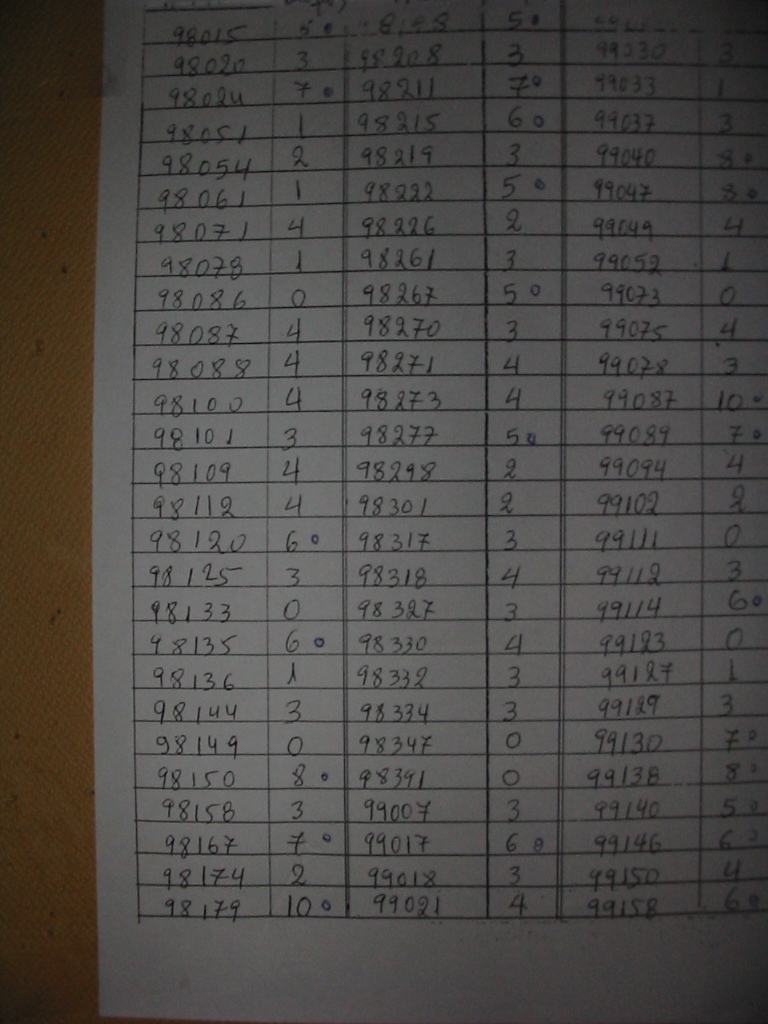 98015 5 5
98020 3 98208 3 99030 3
98024 7 98211 7 99033 1
98051 1 98215 6 99037 3
98054 2 98219 3 99040 8
98061 1 98222 5 99047 8
98071 4 98226 2 99049 4
98078 1 98261 3 99052 1
98086 0 98267 5 99073 0
98087 4 98270 3 99075 4
98088 4 98271 4 99078 3
98100 4 98273 4 99087 10
98101 3 98277 5 99089 7
98109 4 98298 2 99094 4
98112 4 98301 2 99102 2
98120 6 98317 3 99111 0
98125 3 98318 4 99112 3
98133 0 98327 3 99114 6
98135 6 98330 4 99123 0
98136 1 98332 3 99127 1
98144 3 98334 3 99129 3
98149 0 98347 0 99130 7
98150 8 98391 0 99138 8
98158 3 99007 3 99140 5
98167 7 99017 6 99146 6
98174 2 99018 3 99150 4
98179 10 99021 4 99158 6